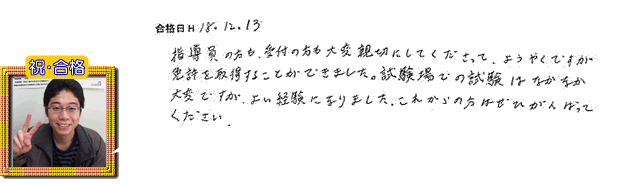 合格日 H 18.12.13
祝・合格
指導員の方も、受付の方も大変親切にしてくださって、ようやくですが
免許を取得することができました。試験場での試験はなかなか
大変ですが、よい経験になりました。これからの方はぜひがんばって
ください.